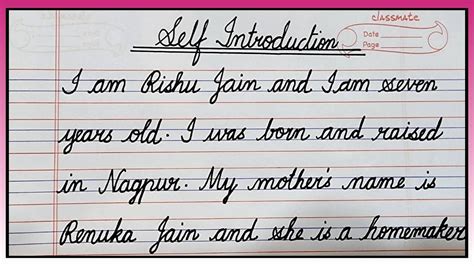 classmate
Date
Page
Self Introduction
I am Rishu Jain and I am seven
years old. I was born and raised
in Nagpur. My mother's name is
Renuka Jain and she is a homemaker